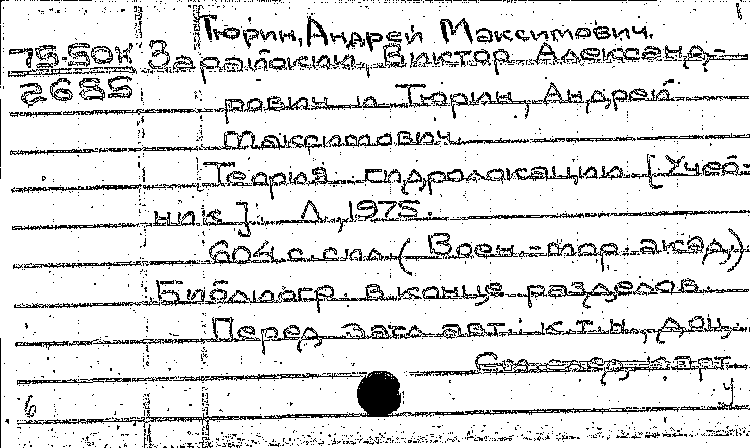 Тюрин, Андрей Максимович.
75-50к Зарайский, Виктор Александ-
2685
рович и Тюрин, Андрей
Максимович.
Теория гидролокации [Учеб-
ник]. Л., 1975.
604 с. с ил. (Воен.-мор. акад.)
Библиогр. в конце разделов.
Перед загл. авт.: к.т.н., доц.
См. след. карт.
6